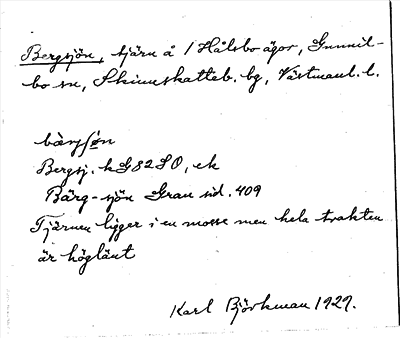 Bergsjön, tjärn å 1 Hålsbo ägor, Gunnil-
bo sn, Skinnskatteb. bg, Västmanl. l.
bærjʃøn
Bergsj. h G 82 SO, ek
Bärg-sjön Gran sid. 409
Tjärnen ligger i en mosse men hela trakten
är höglänt
Karl Björkman 1929.